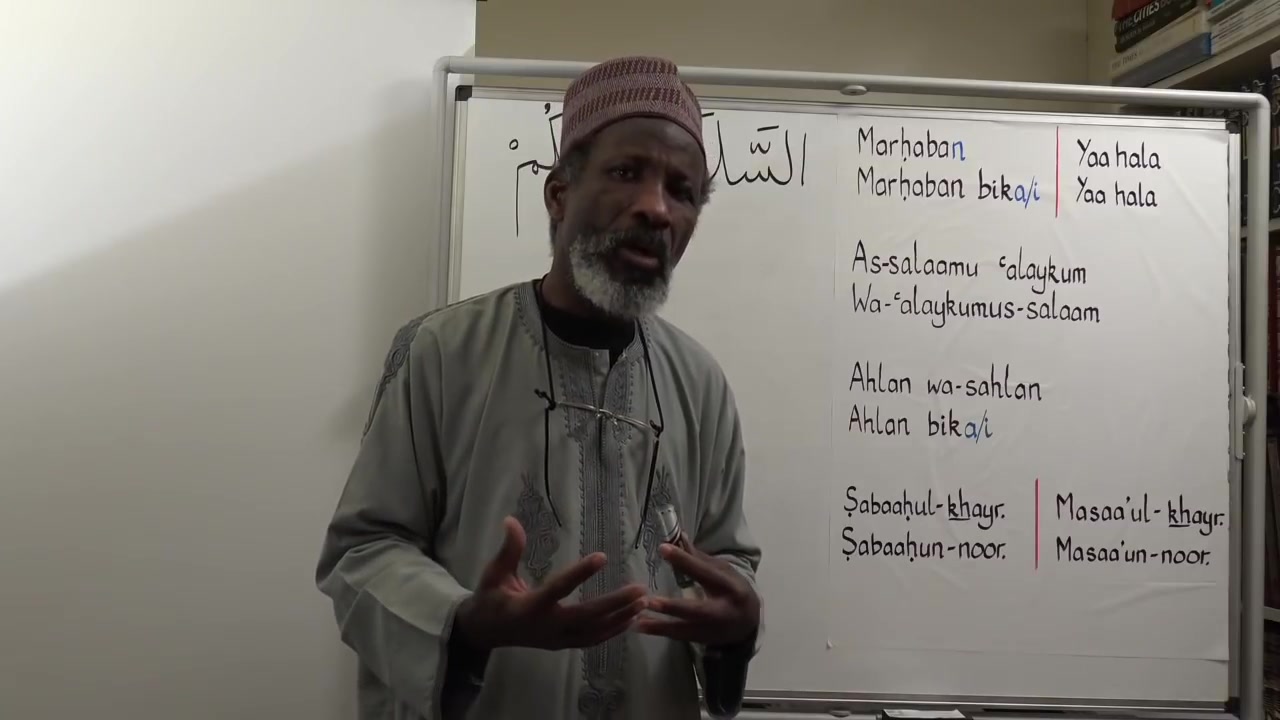 السَّلَا
Marḥaban
Marḥaban bika/i
Yaa hala
Yaa hala
As-salaamu ʿalaykum
Wa-ʿalaykumus-salaam
Ahlan wa-sahlan
Ahlan bika/i
Ṣabaaḥul-khayr.
Ṣabaaḥun-noor.
Masaa'ul-khayr.
Masaa'un-noor.
THE CITIES